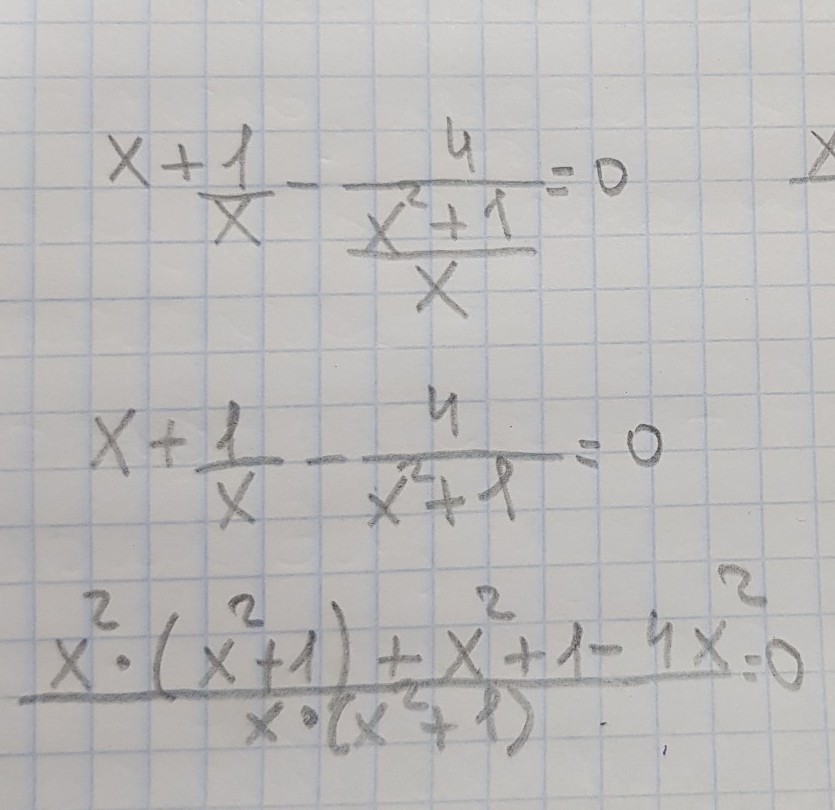 x + 1/x - 4/((x² + 1)/x) = 0
x + 1/x - 4/(x² + 1) = 0
(x² · (x² + 1) + x² + 1 - 4x²)/(x · (x² + 1)) = 0